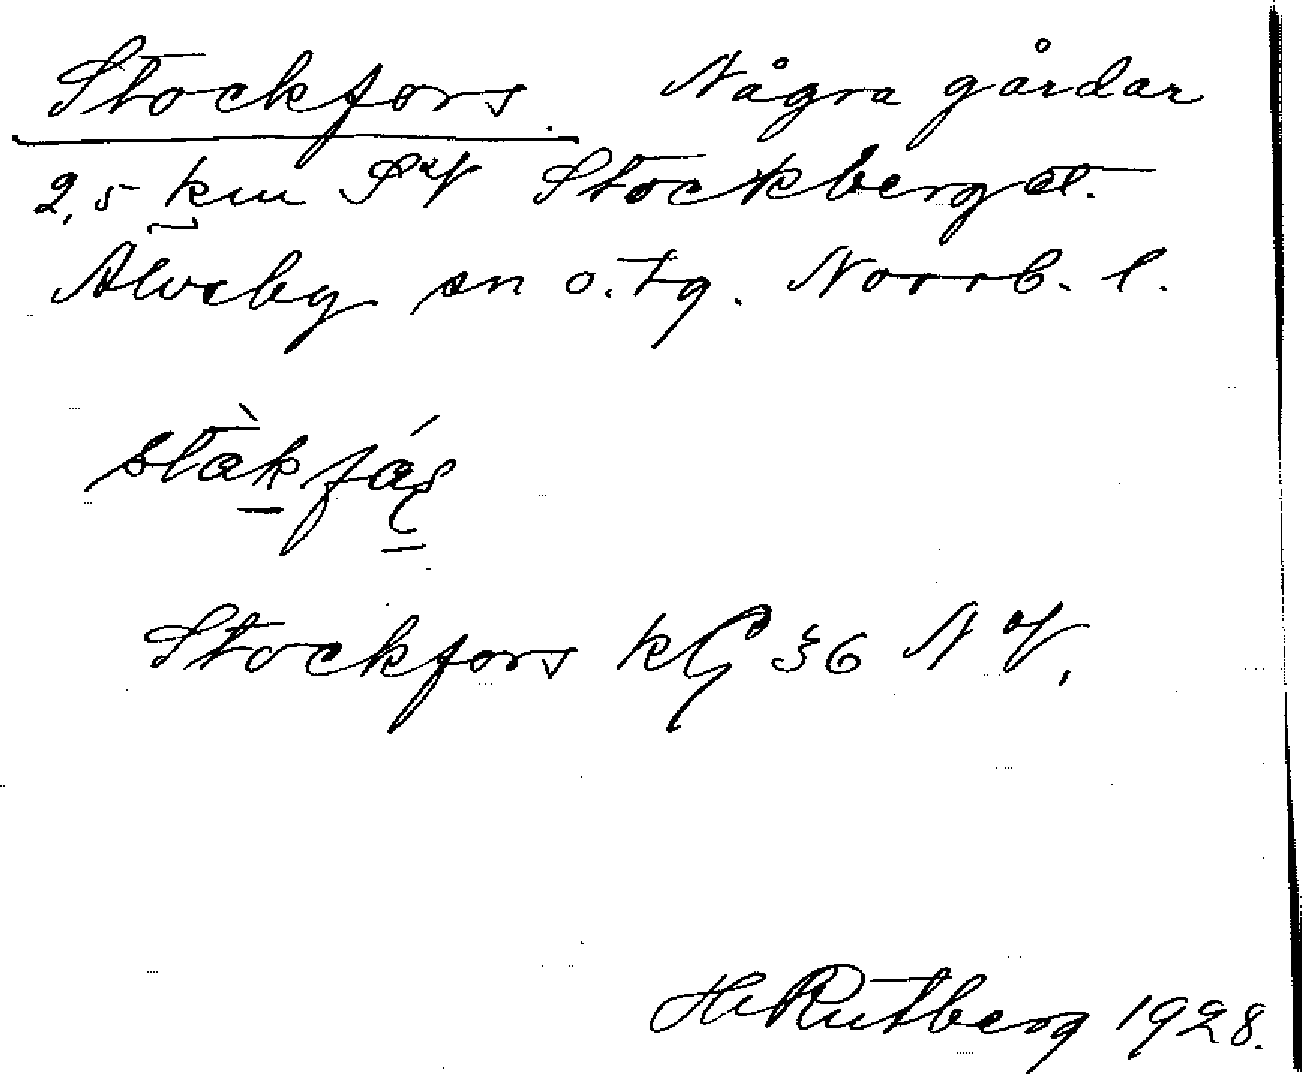 Stockfors. Några gårdar
2,5 km SV Stockberget.
Älvsby sn o. tg. Norrb. l.
Stockfors kG 36 NV,
H Rutberg 1928.